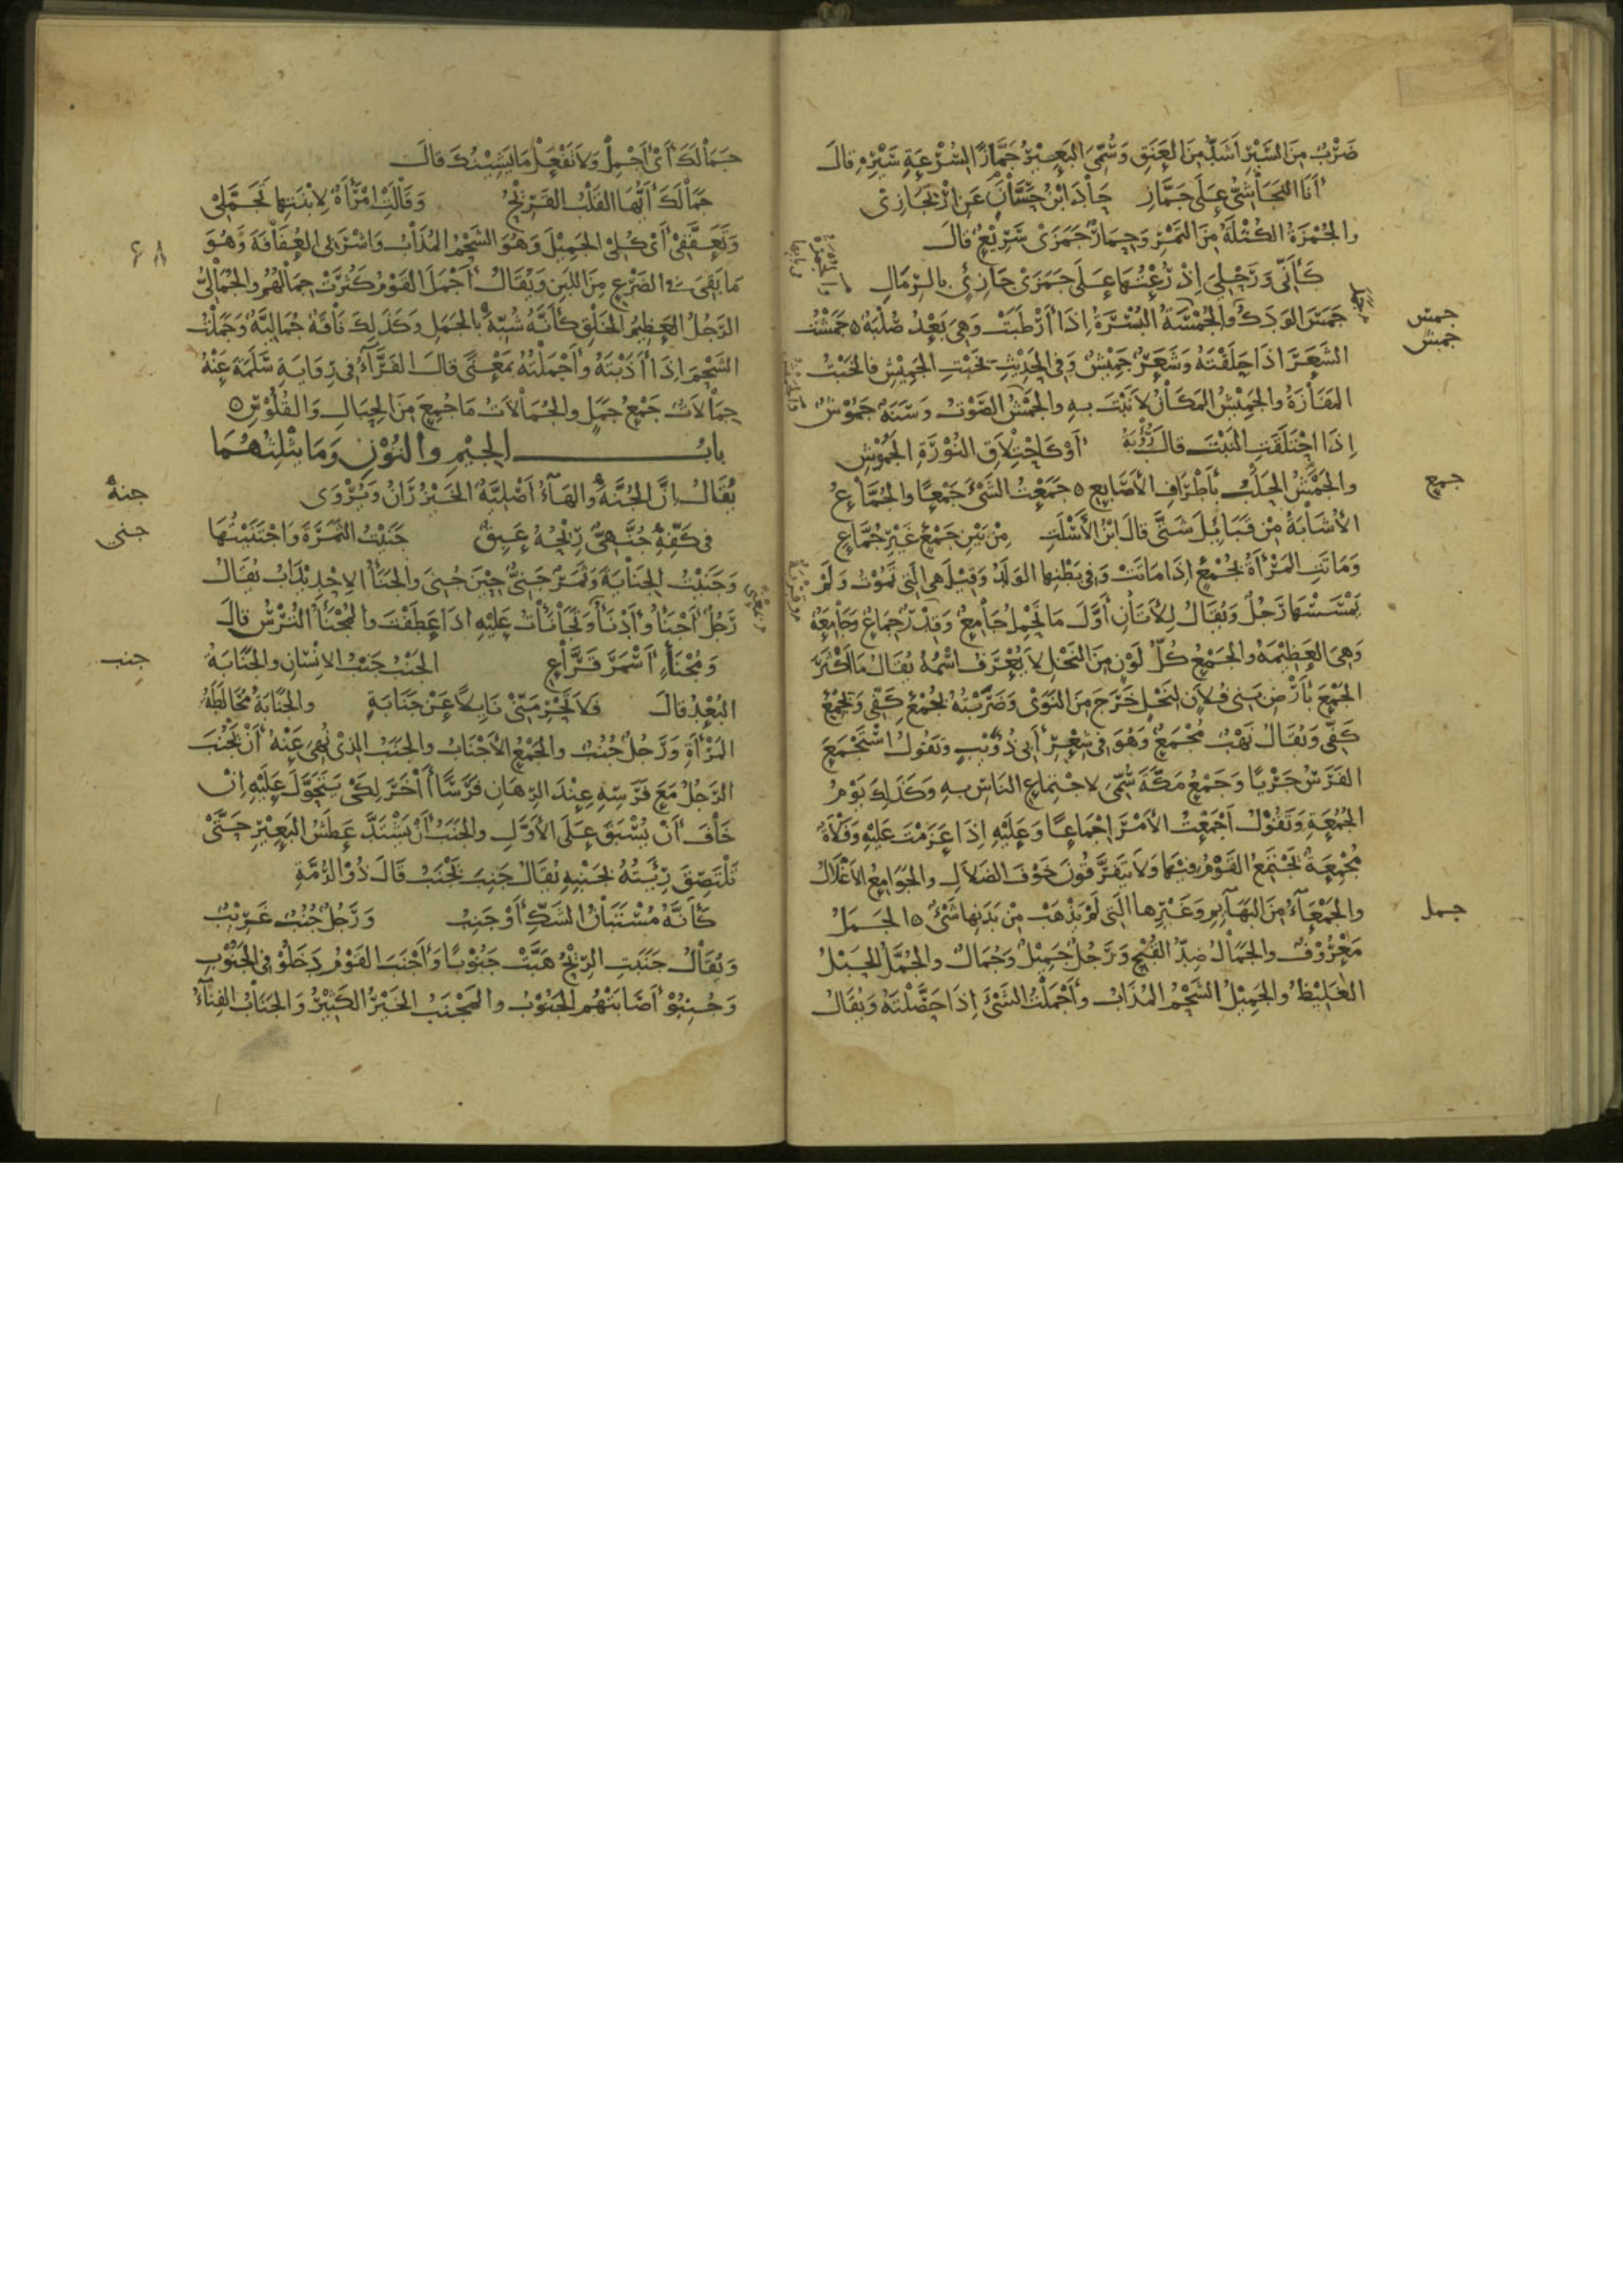 ضَرْبٌ مِنَ السَّيْرِ أَشَدُّ مِنَ العَنَقِ وَسُمِّيَ البَعِيْرُ جَمَّازًا لِسُرْعَةِ سَيْرِهِ قالَ
أَنَا النَجَاشِيُّ عَلَى جَمَّازِ حَادَ ابْنُ حَسَّانَ عَنِ ارْتِجَازِي
والجُمْزَةُ الكُتْلَةُ مِنَ التَمْرِ وَحِمَارٌ جَمَزَى سَرِيْعٌ قالَ
كَأَنِّي وَرَحْلِي إِذْ رُعْتُهَا عَلَى جَمَزَى جَازِئٍ بِالرِّمَالِ
جَمَسَ الوَدَكُ والجُمْسَةُ البُسْرَةُ إِذَا أَرْطَبَتْ وَهِيَ بَعْدُ صُلْبَةٌ جَمَشْتُ
الشَعَرَ اذَا حَلَقْتَهُ وَشَعَرٌ جَمِيْشٌ وَفِي الحَدِيْثِ بِخَبْتِ الجَمِيْشِ فَالخَبْتُ
المَفَازَةُ والجَمِيْشُ المَكَانُ لا نَبْتَ بِهِ والجَمْشُ الصَّوْتُ وَسَنَةٌ جَمُوْشٌ
إِذَا احْتَلَقَتِ النَبْتَ قالَ رُؤْبَةُ أَوْ كَاحْتِلاَقِ النُوْرَةِ الجَمُوْشِ
والجَمْشُ الحَلْبُ بِأَطْرَافِ الأَصَابِعِ جَمَعْتُ الشَّيْءَ جَمْعًا والجُمَّاعُ
الأُشَابَةُ مِنْ قَبَائِلَ شَتَّى قالَ ابْنُ الأَسْلَتِ مِنْ بَيْنِ جَمْعٍ غَيْرِ جُمَّاعِ
وَمَاتَتِ المَرْأَةُ بِجُمْعٍ إِذَا مَاتَتْ وَفِي بَطْنِهَا الوَلَدُ وَقِيْلَ هِيَ الَّتِي تَمُوْتُ وَلَمْ
يَمْسَسْهَا رَجُلٌ وَيُقَالُ لِلأَتَانِ أَوَّلَ مَا تَحْمِلُ جَامِعٌ وَقِدْرٌ جِمَاعٌ وَجَامِعَةٌ
وَهِيَ العَظِيْمَةُ والجَمْعُ كُلُّ لَوْنٍ مِنَ النَخْلِ لاَ يُعْرَفُ اسْمُهُ يُقَالُ مَا أَكْثَرَ
الجَمْعَ بِأَرْضِ بَنِي فُلاَنٍ لِنَخْلٍ خَرَجَ مِنَ النَوَى وَضَرَبْتُهُ بِجُمْعِ كَفِّي وَبِجِمْعِ
كَفِّي وَيُقَالُ نَهْبٌ مُجْمَعٌ وَهُوَ فِي شِعْرِ أَبِي ذُؤَيْبٍ وَتَقُولُ اسْتَجْمَعَ
الفَرَسُ جَرْيًا وَجَمْعٌ مَكَّةَ سُمِّيَ لاجْتِمَاعِ النَاسِ بِهِ وَكَذَلِكَ يَوْمُ
الجُمُعَةِ وَتَقُوْلُ أَجْمَعْتُ الأَمْرَ إِجْمَاعًا وَعَلَيْهِ إِذَا عَزَمْتَ عَلَيْهِ وَفَلاَةٌ
مُجْمِعَةٌ تَجْتَمِعُ القَوْمُ فِيْهَا وَلاَ يَتَفَرَّقُونَ خَوْفَ الضَلاَلِ والجَوَامِعُ الأَغْلاَلُ
والجَمْعَاءُ مِنَ البَهَائِمِ وَغَيْرِهَا الَّتِي لَمْ يَذْهَبْ مِنْ بَدَنِهَا شَيْءٌ الجَمَلُ
مَعْرُوْفٌ والجَمَالُ ضِدُّ القُبْحِ وَرَجُلٌ جَمِيْلٌ وَجُمَالٌ والجُمَّلُ الحَبْلُ
الغَلِيْظُ والجَمِيْلُ الشَحْمُ المُذَابُ وأَجْمَلْتُ الشَيْءَ إِذَا حَصَّلْتَهُ وَيُقَالُ
جمس
جمش
جمع
جمل
جَمَالَكَ أَيْ أَجْمِلْ وَلاَ تَفْعَلْ مَا يَشِيْنُكَ قالَ
جَمَالَكَ أَيُّهَا القَلْبُ القَرِيْحُ وَقَالَتِ امْرَأَةٌ لِابْنَتِهَا تَجَمَّلِي
وَتَعَفَّفِيْ أَيْ كُلِي الجَمِيْلَ وَهُوَ الشَحْمُ المُذَابُ وَاشْرَبِي العُفَافَةَ وَهُوَ
مَا بَقِيَ فِي الضَرْعِ مِنَ اللَبَنِ وَيُقَالُ أَجْمَلَ القَوْمُ كَثُرَتْ جِمَالُهُم والجُمَالِيُّ
الرَجُلُ العَظِيْمُ الخَلْقِ كَأَنَّهُ شُبِّهَ بِالجَمَلِ وَكَذَلِكَ نَاقَةٌ جُمَالِيَّةٌ وَجَمَلْتُ
الشَحْمَ إِذَا أَذَبْتَهُ وأَجْمَلْتُهُ بِمَعْنًى قالَ الفَرَّاءُ فِي رِوَايَةِ سَلَمَةَ عَنْهُ
جِمَالاَتٌ جَمْعُ جَمَلٍ والجُمَالاَتُ مَا جُمِعَ مِنَ الحِبَالِ وَالقُلُوْسِ
بابُ الجِيْمِ والنُوْنِ وَمَا يَثْلِثُهُمَا
يُقَالُ إِنَّ الجُنَّةَ والهَاءُ أَصْلِيَّةٌ الخَيْزُرَانُ وَيُرْوَى
فِي كَفِّهِ جُنَهِيٌّ رِيْحُهُ عَبِقٌ جَنَيْتُ الثَمَرَةَ وَاجْتَنَيْتُهَا
وَجَنَيْتُ الجِنَايَةَ وَثَمَرٌ جَنِيٌّ حِيْنَ جُنِيَ والجَنَأُ الاحْدِيْدَابُ يُقَالُ
رَجُلٌ أَجْنَأُ وأَدْنَأُ وَتَجَانَأْتُ عَلَيْهِ اذَا عَطَفْتَ والمُجْنَأُ التُرْسُ قالَ
وَمُجْنَأٍ أَسْمَرَ قَرَّاعِ الجَنْبُ جَنْبُ الانْسَانِ والجَنَابَةُ
البُعْدُ قالَ فَلاَ تَحْرِمَنِّيْ نَايِلاً عَنْ جَنَابَةٍ والجَنَابَةُ مُخَالَطَةُ
المَرْأَةِ وَرَجُلٌ جُنُبٌ والجَمْعُ الأَجْنَابُ والجَنَبُ الذِي نُهِيَ عَنْهُ أَنْ يَجْنُبَ
الرَجُلُ مَعَ فَرَسِهِ عِنْدَ الرِهَانِ فَرَسًا أَخَرَ لِكَيْ يَتَحَوَّلَ عَلَيْهِ إِنْ
خَافَ أَنْ يُسْبَقَ عَلَى الأَوَّلِ والجَنَبُ أَنْ يَشْتَدَّ عَطَشُ البَعِيْرِ حَتَّى
تَلْتَصِقَ رِئَتُهُ بِجَنْبِهِ يُقَالُ جَنِبَ يَجْنَبُ قَالَ ذُوْ الرُمَّةِ
كَأَنَّهُ مُسْتَبَانُ الشَكِّ أَوْ جَنِبُ وَرَجُلٌ جُنُبٌ غَرِيْبٌ
وَيُقَالُ جَنَبَتِ الرِيْحُ هَبَّتْ جَنُوْبًا وَأَجْنَبَ القَوْمُ دَخَلُوْ فِي الجَنُوْبِ
وَجُنِبُوْ أَصَابَتْهُمُ الجَنُوْبُ والمَجْنَبُ الخَيْرُ الكَثِيْرُ وَالجَنَابُ الفِنَاءُ
جنة
جنى
جنب